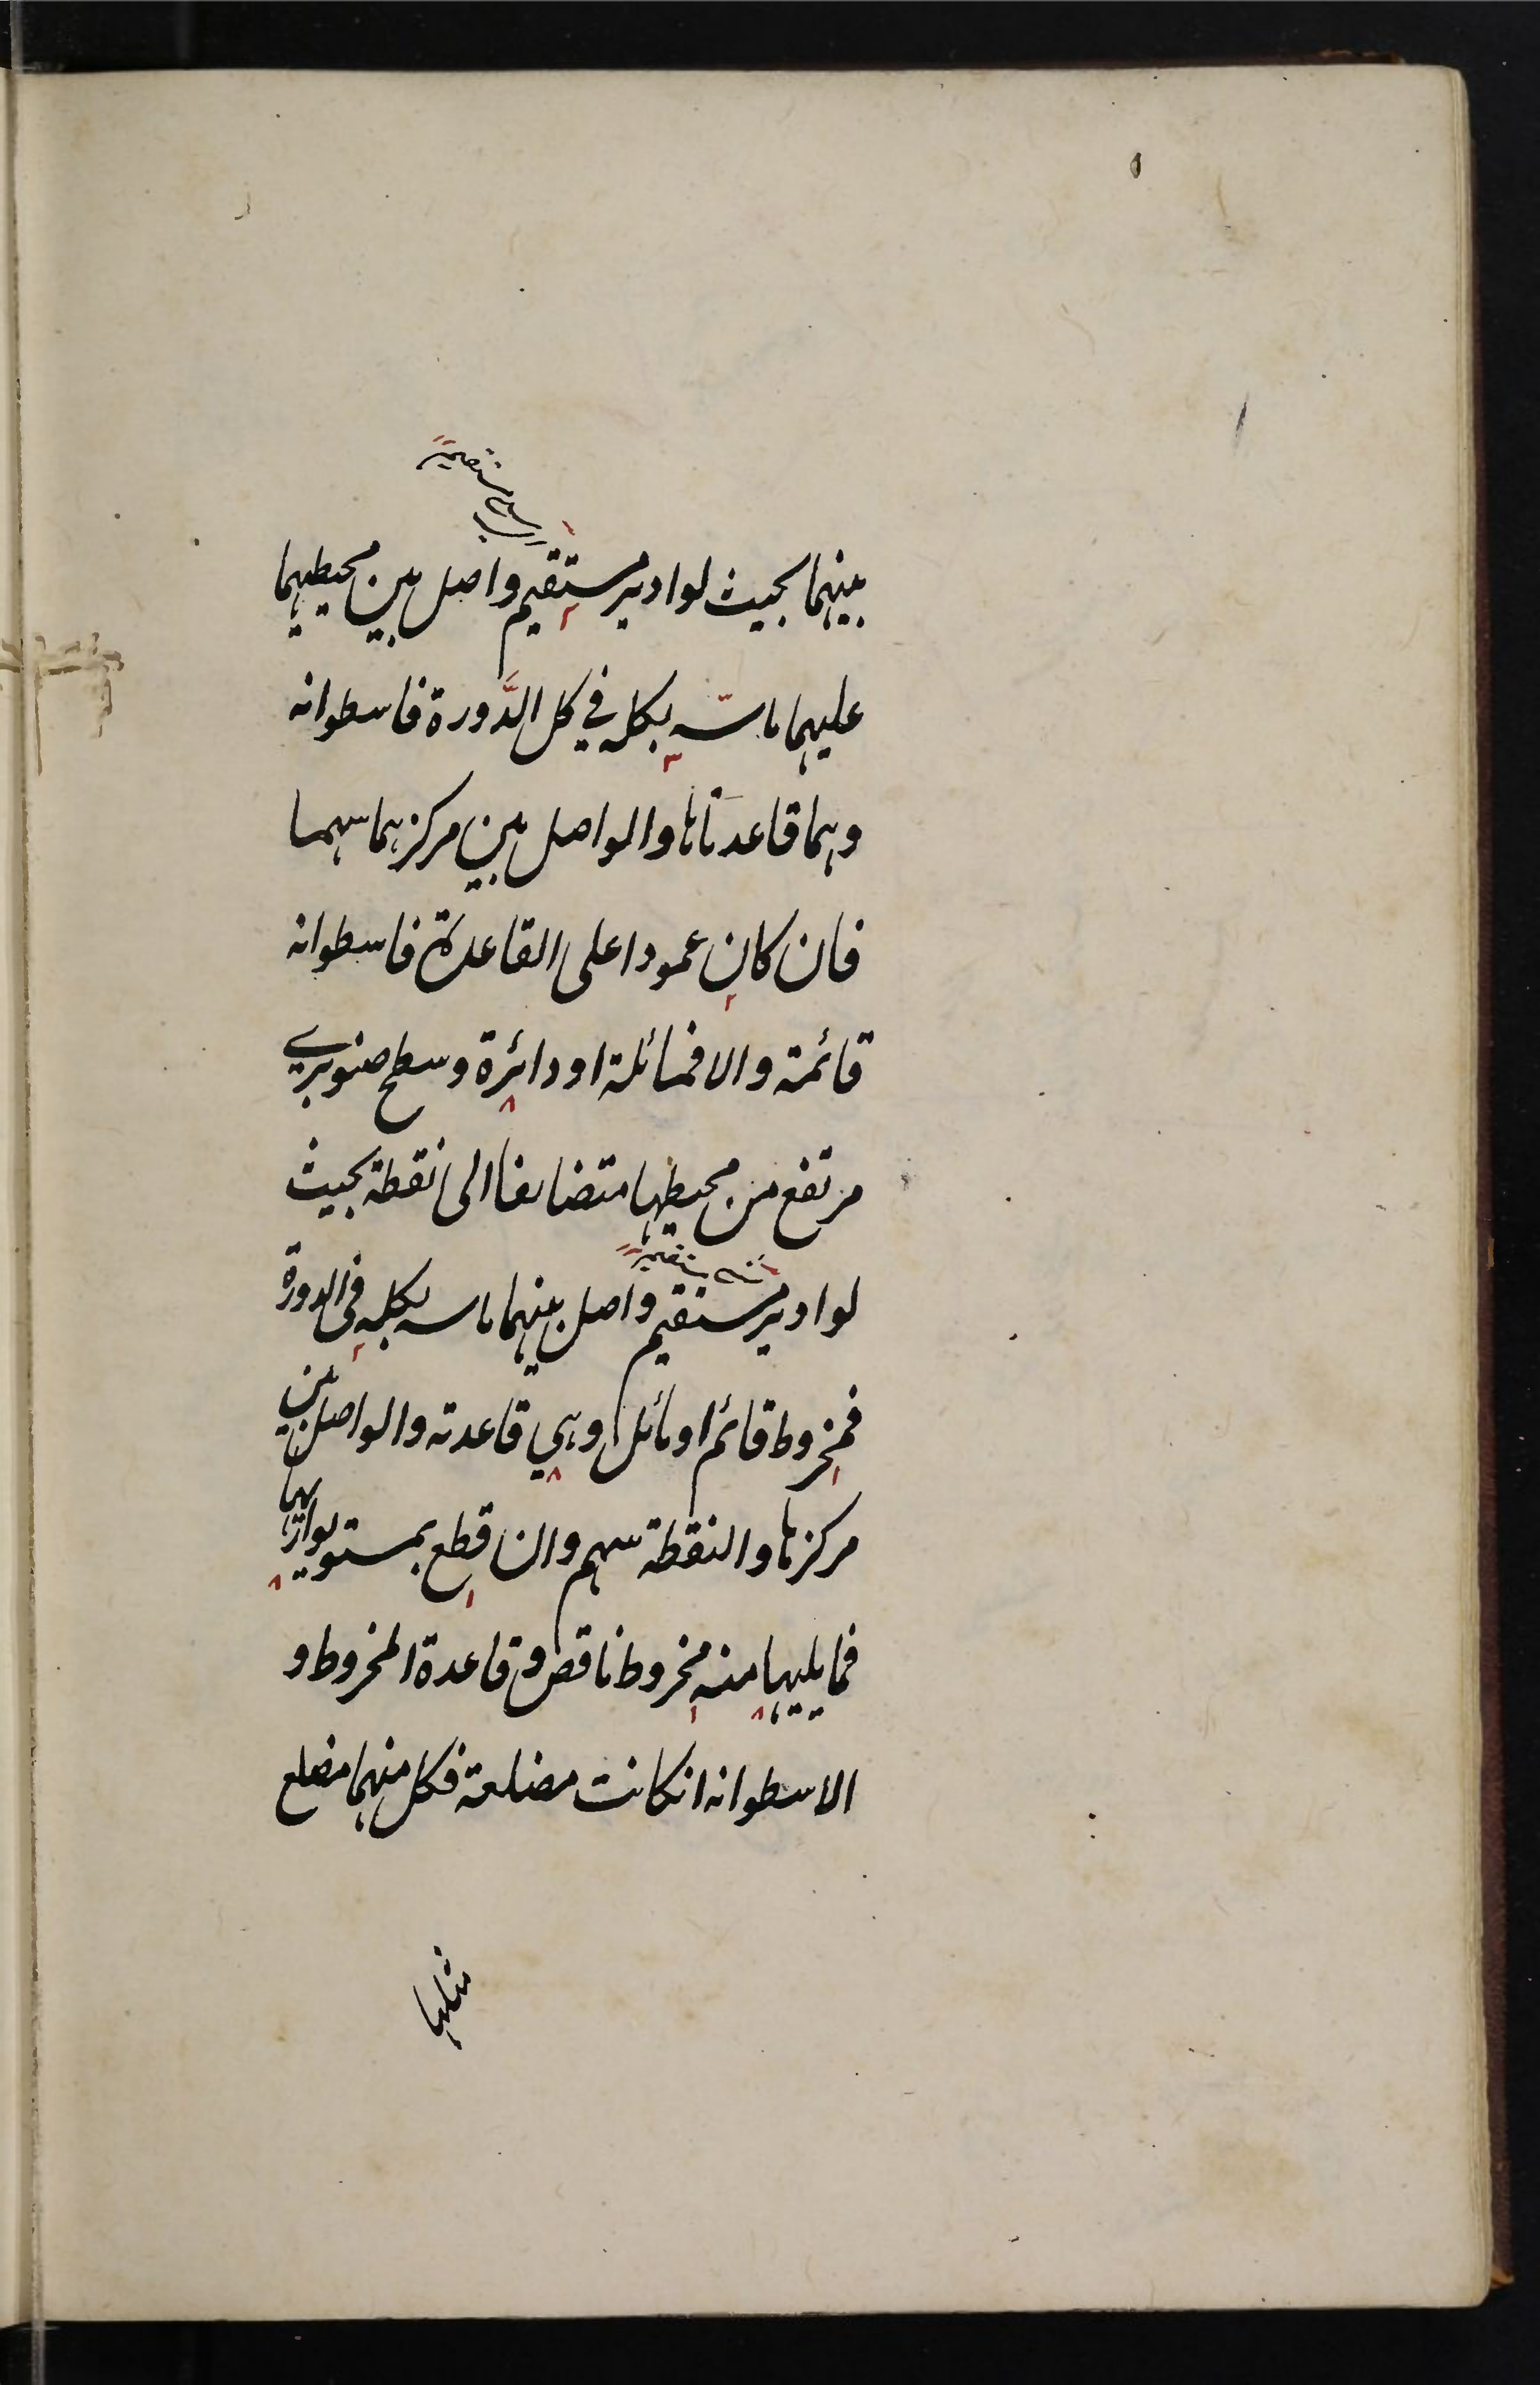 بينهما بحيث لو ادير مستقيم واصل بين محيطيهما
عليهما ماسه بكله في كل الدَّورة فاسطوانه
وهما قاعدتاها والواصل بين مركزهما سهمها
فان كان عمودا على القاعدة فاسطوانه
قائمة والا فمائلة او دائرة وسطح صنوبري
مرتفع من محيطها متضايقا الى نقطة بحيث
لو ادير مستقيم واصل بينهما ماسه بكله في الدورة
فمخروط قائم او مائل وهي قاعدته والواصل بين
مركزها والنقطة سهم وان قطع بمستو يوازيها
فما يليها منه مخروط ناقص و قاعدة المخروط و
الاسطوانه انكانت مضلعة فكل منهما مضلع
مثلها